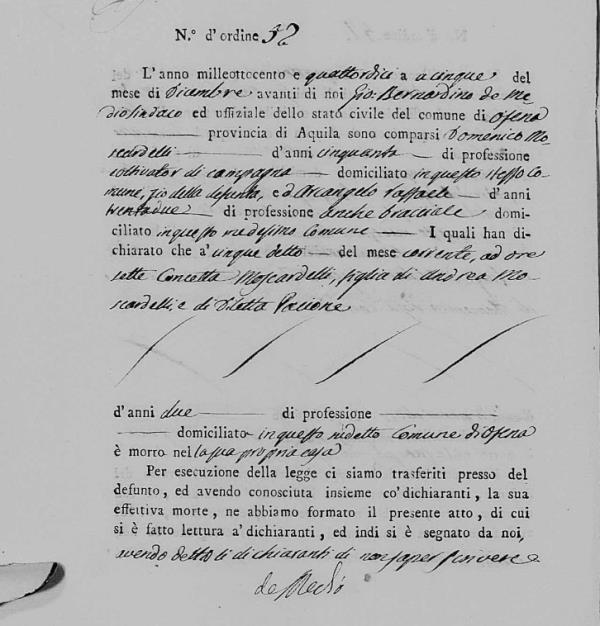 N.º d'ordine 52
L'anno milleottocento e quattordici a cinque del
mese di Dicembre avanti di noi Gio: Bernardino de Me-
dio Sindaco ed uffiziale dello stato civile del comune di Ofena
provincia di Aquila sono comparsi Domenico Mo-
scardelli d'anni cinquanta di professione
coltivator di campagna domiciliato in questo stesso Co-
mune, zio della defunta, e d Arcangelo Raffaele d'anni
trentadue di professione anche bracciale domi-
ciliato in questo medesimo Comune I quali han di-
chiarato che a' cinque detto del mese corrente, ad ore
sette Concetta Moscardelli, figlia di Andrea Mo-
scardelli, e di Diletta Pacione
d'anni due di professione
domiciliato in questo ridetto Comune di Ofena
è morto nel la sua propria casa
Per esecuzione della legge ci siamo trasferiti presso del
defunto, ed avendo conosciuta insieme co' dichiaranti, la sua
effettiva morte, ne abbiamo formato il presente atto, di cui
si è fatto lettura a' dichiaranti, ed indi si è segnato da noi,
avendo detto li dichiaranti di non saper scrivere
de Medio